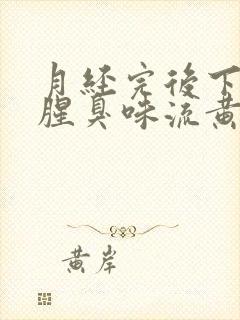 月経完後下
腥臭味流黃
黃岸